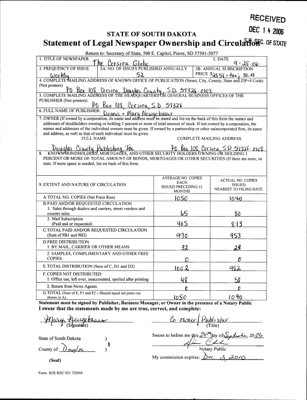 RECEIVED
DEC 14 2006
SEC. OF STATE
STATE OF SOUTH DAKOTA
Statement of Legal Newspaper Ownership and Circulation
Return to: Secretary of State, 500 E. Capitol, Pierre, SD 57501-5077
1. TITLE OF NEWSPAPER The Corsica Globe
2. DATE 9-25-06
3. FREQUENCY OF ISSUE Weekly
3A. NO. OF ISSUES PUBLISHED ANNUALLY 52
3B. ANNUAL SUBSCRIPTION PRICE
4. COMPLETE MAILING ADDRESS OF KNOWN OFFICE OF PUBLICATION (Street, City, County, State and ZIP+4 Code)
(Not printers)
PO Box 108, Corsica, Douglas County, S.D. 57328-0108
5. COMPLETE MAILING ADDRESS OF THE HEADQUARTERS OF GENERAL BUSINESS OFFICES OF THE
PUBLISHER (Not printers)
PO Box 108, Corsica, SD 57328
6. FULL NAME OF PUBLISHER:
7. OWNER (If owned by a corporation, its name and address must be stated and list on the back of this form the names and
addresses of stockholders owning or holding 1 percent or more of total amount of stock. If not owned by a corporation, the
names and addresses of the individual owners must be given. If owned by a partnership or other unincorporated firm, its name
and address, as well as that of each individual must be given.
FULL NAME
COMPLETE MAILING ADDRESS
Douglas County Publishing Inc.
PO Box 108 Corsica, S.D. 57328-0108
8. KNOWN BONDHOLDERS, MORTGAGEES, AND OTHER SECURITY HOLDERS OWNING OR HOLDING 1
PERCENT OR MORE OF TOTAL AMOUNT OF BONDS, MORTGAGES OR OTHER SECURITIES (If there are none, so
state. If more space is needed, list on back of this form)
9. EXTENT AND NATURE OF CIRCULATION
AVERAGE NO. COPIES EACH ISSUES PRECEDING 12 MONTHS
ACTUAL NO. COPIES ISSUED NEAREST TO FILING DATE
A. TOTAL NO. COPIES (Net Press Run) 1050 1040
B. PAID AND/OR REQUESTED CIRCULATION
1. Sales through dealers and carriers, street vendors and
counter sales. 65 80
2. Mail Subscription
(Paid and or requested) 905 873
C. TOTAL PAID AND/OR REQUESTED CIRCULATION
(Sum of 9B1 and 9B2) 970 953
D. FREE DISTRIBUTION
1. BY MAIL, CARRIER OR OTHER MEANS 32 29
2. SAMPLES, COMPLIMENTARY AND OTHER FREE
COPIES 0 0
E. TOTAL DISTRIBUTION (Sum of C, D1 and D2) 1002 982
F. COPIES NOT DISTRIBUTED
1. Office use, left over, unaccounted, spoiled after printing 48 58
2. Return from News Agents 0 0
G. TOTAL (Sum of E, F1 and F2 – Should equal net press run
shown in A) 1050 1040
Statement must be signed by Publisher, Business Manager, or Owner in the presence of a Notary Public
I swear that the statements made by me are true, correct, and complete:
(Signature)
Co owner/Publisher
(Title)
State of South Dakota )
§
County of Douglas )
Sworn to before me this day of September, 2006
Notary Public
(Seal)
My commission expires: Dec 3, 2010
Form: SOS REC 051 7/2004